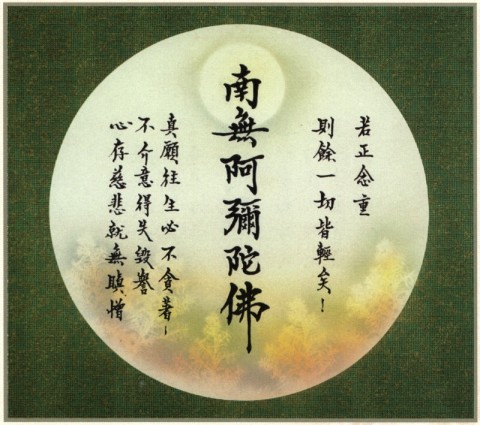 若正念重
則餘一切皆輕矣！
南無阿彌陀佛
真願往生必不貪著！
不介意得失毀譽
心存慈悲就無瞋憎